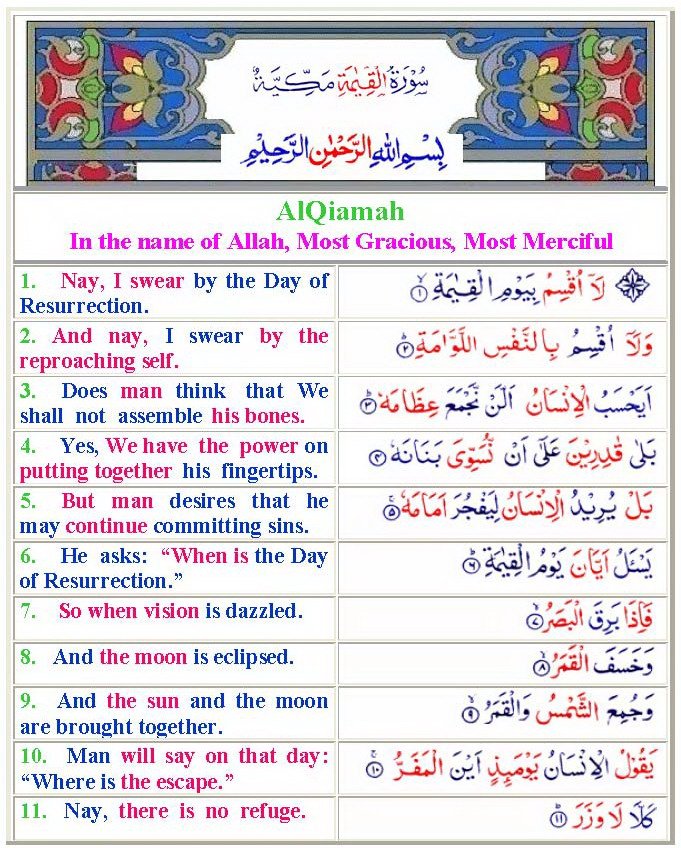 سُورَةُ الْقِيٰمَةِ مَكِّيَّةٌ
بِسْمِ اللهِ الرَّحْمٰنِ الرَّحِيْمِ
AlQiamah
In the name of Allah, Most Gracious, Most Merciful
1. Nay, I swear by the Day of
Resurrection.
لَآ اُقْسِمُ بِيَوْمِ الْقِيٰمَةِ ۙ﴿۱﴾
2. And nay, I swear by the
reproaching self.
وَلَآ اُقْسِمُ بِالنَّفْسِ اللَّوَّامَةِ ؕ﴿۲﴾
3. Does man think that We
shall not assemble his bones.
اَيَحْسَبُ الْاِنْسَانُ اَلَّنْ نَّجْمَعَ عِظَامَهٗ ؕ﴿۳﴾
4. Yes, We have the power on
putting together his fingertips.
بَلٰى قٰدِرِيْنَ عَلٰٓى اَنْ نُّسَوِّىَ بَنَانَهٗ ﴿۴﴾
5. But man desires that he
may continue committing sins.
بَلْ يُرِيْدُ الْاِنْسَانُ لِيَفْجُرَ اَمَامَهٗ ۚ﴿۵﴾
6. He asks: “When is the Day
of Resurrection.”
يَسْـَٔلُ اَيَّانَ يَوْمُ الْقِيٰمَةِ ؕ﴿۶﴾
7. So when vision is dazzled.
فَاِذَا بَرِقَ الْبَصَرُ ۙ﴿۷﴾
8. And the moon is eclipsed.
وَخَسَفَ الْقَمَرُ ۙ﴿۸﴾
9. And the sun and the moon
are brought together.
وَجُمِعَ الشَّمْسُ وَالْقَمَرُ ۙ﴿۹﴾
10. Man will say on that day:
“Where is the escape.”
يَقُوْلُ الْاِنْسَانُ يَوْمَئِذٍ اَيْنَ الْمَفَرُّ ۚ﴿۱۰﴾
11. Nay, there is no refuge.
كَلَّا لَا وَزَرَ ؕ﴿۱۱﴾